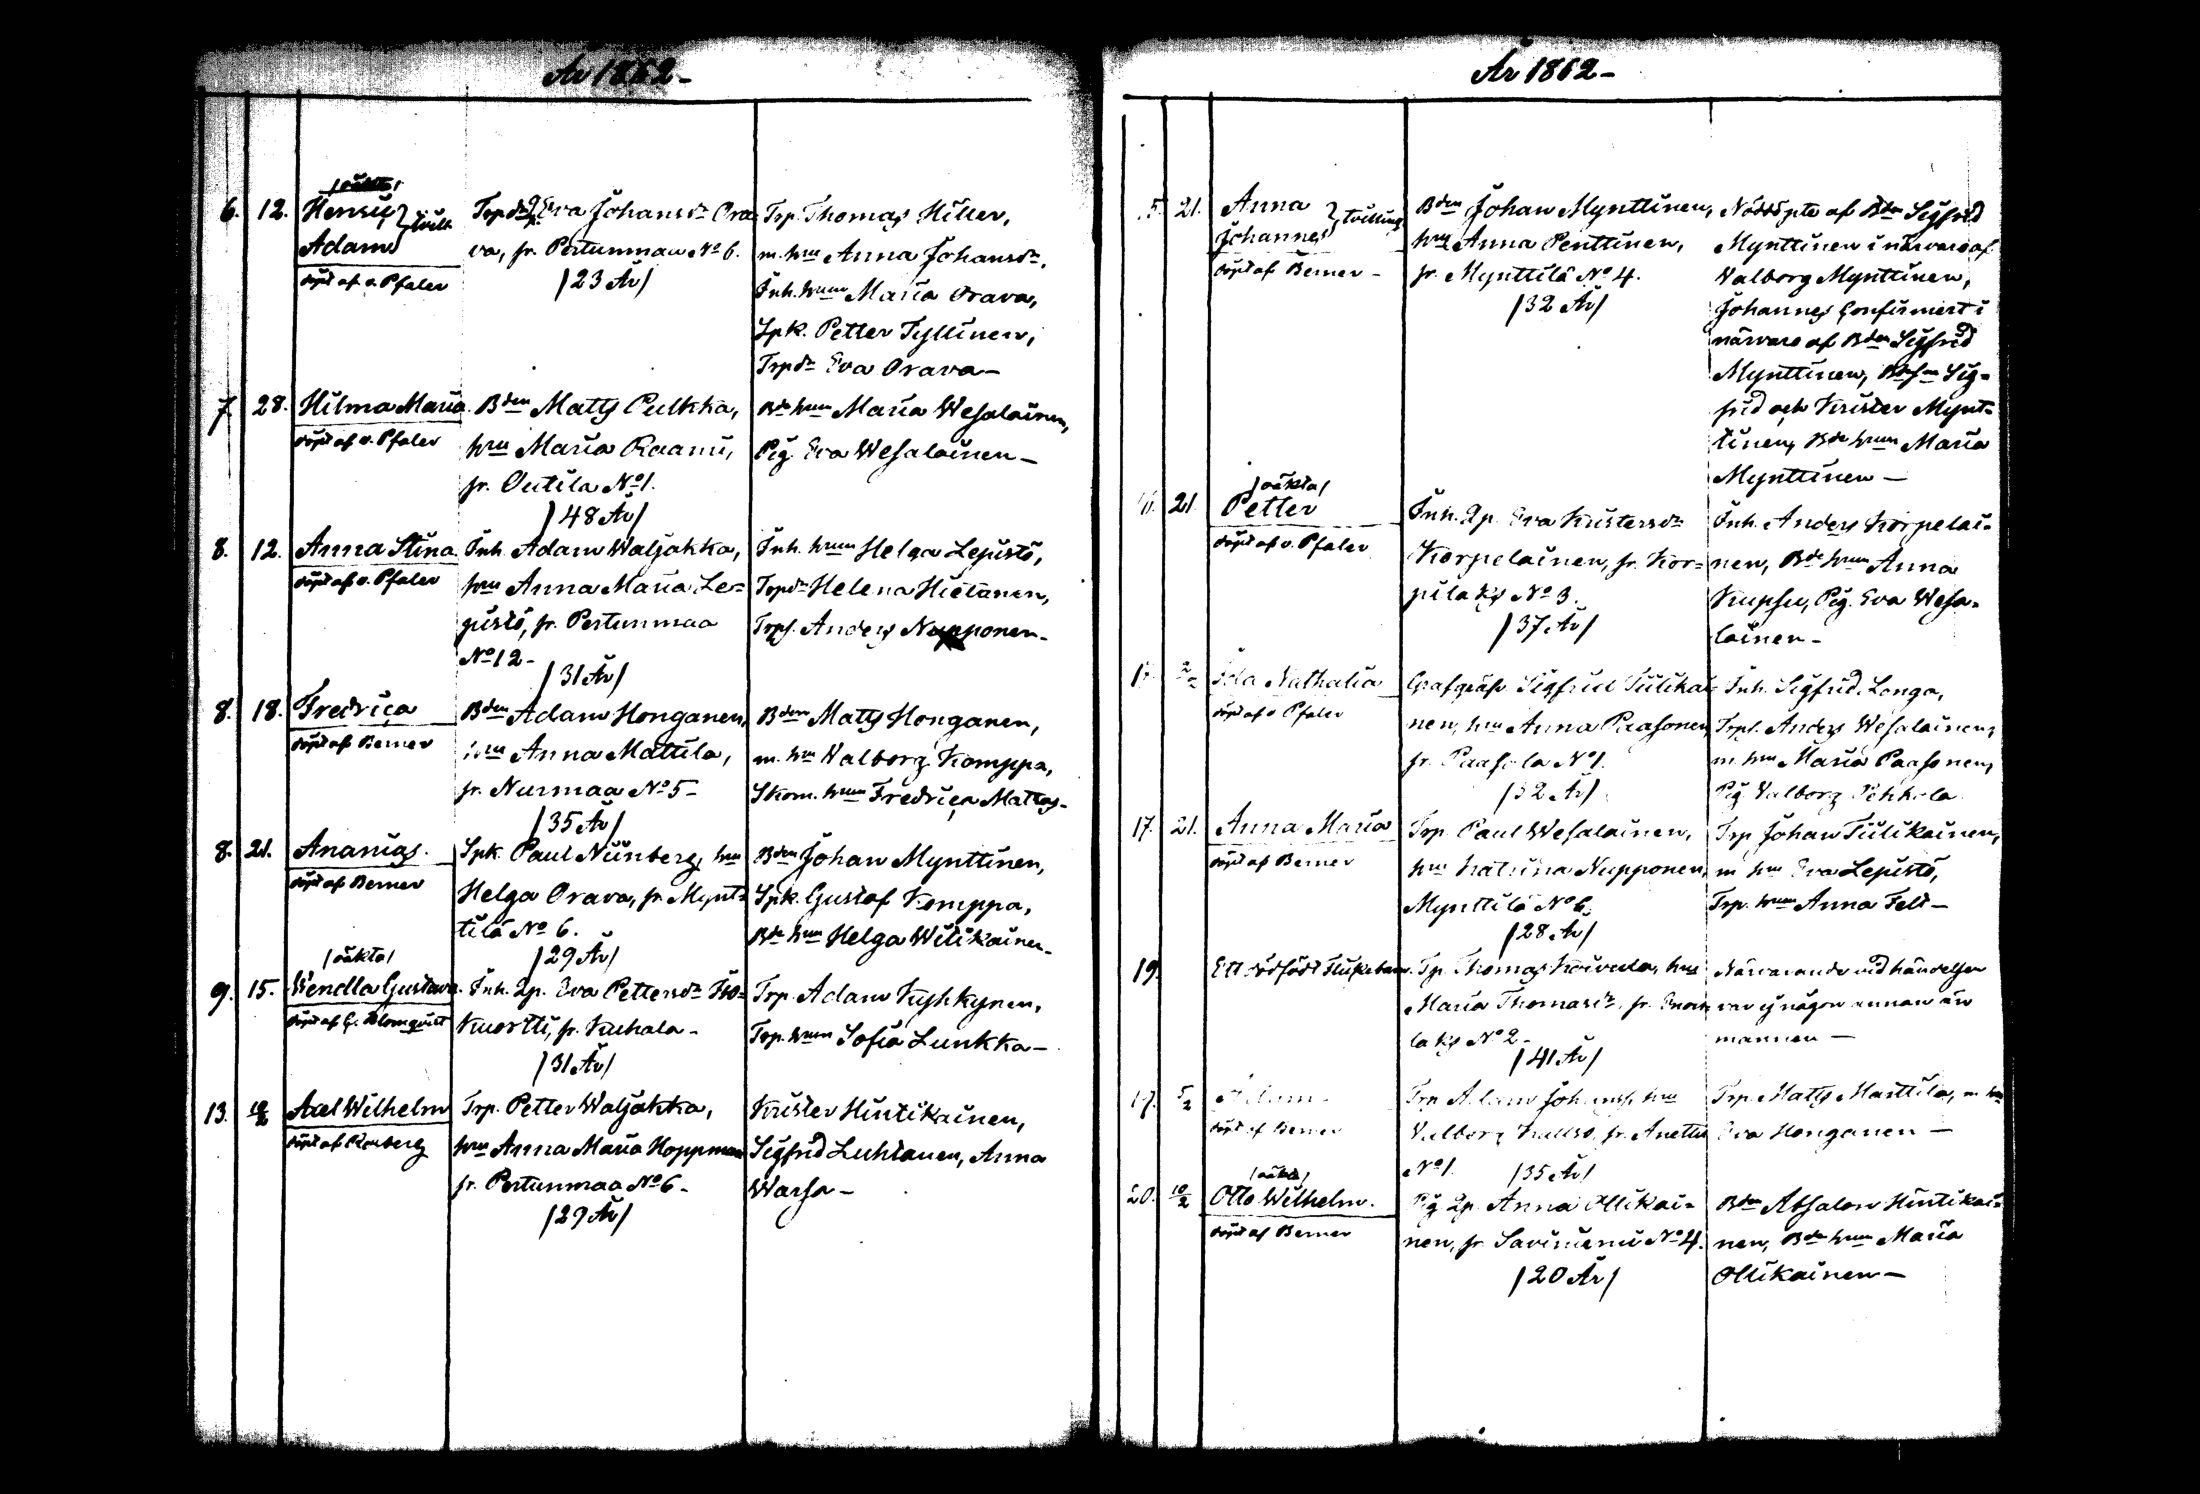 År 1862-
6. 12. /oäkta/
Henric } tvill.
Adam
döpt af v. Pfaler
Trpdr Qp. Eva Johansdr Ora-
va, fr. Pertunmaa No 6.
/23 År/
Trp. Thomas Hiller,
m. hru Anna Johansdr,
Inh. hrun Maria Orava,
Spk. Petter Tyllinen,
Trpdr Eva Orava-
7. 28. Hilma Maria
döpt af v. Pfaler
Bden Matts Pulkka,
hru Maria Raami,
fr. Outila No 1.
/48 År/
Bde hrun Maria Wesalainen,
Pig. Eva Wesalainen-
8. 12. Anna Stina
döpt af v. Pfaler
Inh. Adam Waljakka,
hru Anna Maria Le=
pistö, fr. Pertunmaa
No 12-
/31 År/
Inh. hrun Helga Lepistö,
Trpdr Helena Hietanen,
Trps. Anders Nupponen-
8. 18. Fredrica
döpt af Berner
Bden Adam Honganen,
hru Anna Mattila,
fr. Nurmaa No 5-
/35 År/
Bden Matts Honganen,
m. hru Walborg Komppa,
Skom. hrun Fredrica Mattas-
8. 21. Ananias
döpt af Berner
Spk. Paul Nünberg, hru
Helga Orava, fr. Mynt=
tilä No 6.
/29 År/
Bden Johan Mynttinen,
Spk. Gustaf Komppa,
Bde hrun Helga Wilikainen-
9. 15. /oäkta/
Wendla Gustava
döpt af G. Blomqvist
Inh. Qp. Eva Pettersdr Iso=
Kuortti, fr. Kuhala-
/31 År/
Trp. Adam Kyhkynen,
Trp. hrun Sofia Lunkka-
13. 10/2 Axel Wilhelm
döpt af
Trp. Petter Waljakka,
hru Anna Maria Hoppman
fr. Pertunmaa No 6-
/29 År/
Krister Hintikainen,
Sigfrid Luhtanen, Anna
Warsa-
År 1862-
15. 21. Anna } tvilling
Johannes
döpt af Berner-
Bden Johan Mynttinen,
hru Anna Penttinen,
fr. Mynttilä No 4.
/32 År/
Nöddöpte af Bden Sigfrid
Mynttinen i närvaro af
Valborg Mynttinen,
Johannes Confirmert i
närvaro af Bden Sigfrid
Mynttinen, Bdesn Sig=
frid och Krister Mynt=
tinen, Bde hrun Maria
Mynttinen-
16. 21. /oäkta/
Petter
döpt af v. Pfaler
Inh. Qp. Eva Kristersdr
Korpelainen, fr. Kor=
pilaks No 3.
/37 År/
Inh. Anders Korpelai=
nen, Bde hrun Anna
Kupsu, Pig. Eva Wesa=
lainen-
Ida Nathalia
döpt af v Pfaler
Sigfrid Tiilikai=
nen, hru Anna Paasonen,
fr. Paasola No 1.
/32 År/
Inh. Sigfrid Longa,
Trps. Anders Wesalainen,
m hru Maria Paasonen,
Pig Valborg Pekkola
17. 21. Anna Maria
döpt af Berner
Trp. Paul Wesalainen,
hru Katrina Nupponen,
Mynttilä No 6.
/28 År/
Trp. Johan Tiilikainen,
m hru Eva Lepistö,
Trp. hrun Anna Felt-
19. Ett dödfödt flickebarn.
Trp. Thomas Koivula, hru
Maria Thomasdr, fr.
laks No 2-
/41 År/
Närvarande vid händelsen
var ej någon annan än
mannen-
17. 5/2 Adam-
döpt af Berner
Trp Adam Johanss. hru
Valborg, fr. Anettu
No 1. /35 År/
Trp. Matts Marttila, m hru
Eva Honganen-
20. 10/2 /oäkta/
Otto Wilhelm.
döpt af Berner
Pig Qp. Anna Ollikai=
nen, fr. Saviniemi No 4.
/20 År/
Bden Absalon Hintikai=
nen, Bde hrun Maria
Ollikainen-